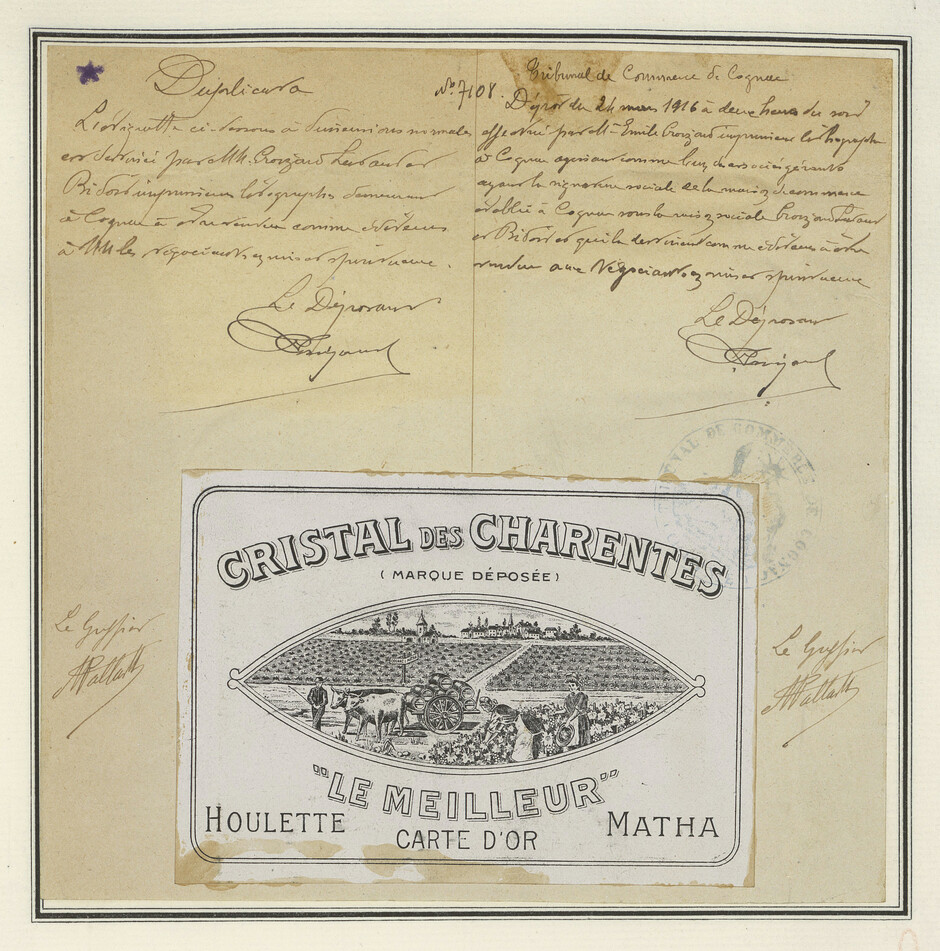 Duplicata
L'étiquette ci-dessous à dimensions normales
est déposée par MM. Croizard
imprimeurs lithographes demeurant
à Cognac à être vendue comme
à MM les négociants en vins et spiritueux.
Le Déposant
Nº 7108
Tribunal de Commerce de Cognac
Dépôt du 24 mars 1916 à deux heures du soir
effectué par Mr Emile Croizard imprimeur lithographe
à Cognac agissant comme l'un des associés gérants
ayant la signature sociale de la maison de commerce
établie à Cognac sous la raison sociale Croizard
et et qu'il la destine comme à être
vendue aux Négociants en vins et spiritueux
Le Déposant
TRIBUNAL DE COMMERCE DE COGNAC
Le Greffier
Le Greffier
CRISTAL DES CHARENTES
(MARQUE DÉPOSÉE)
"LE MEILLEUR"
HOULETTE
CARTE D'OR
MATHA